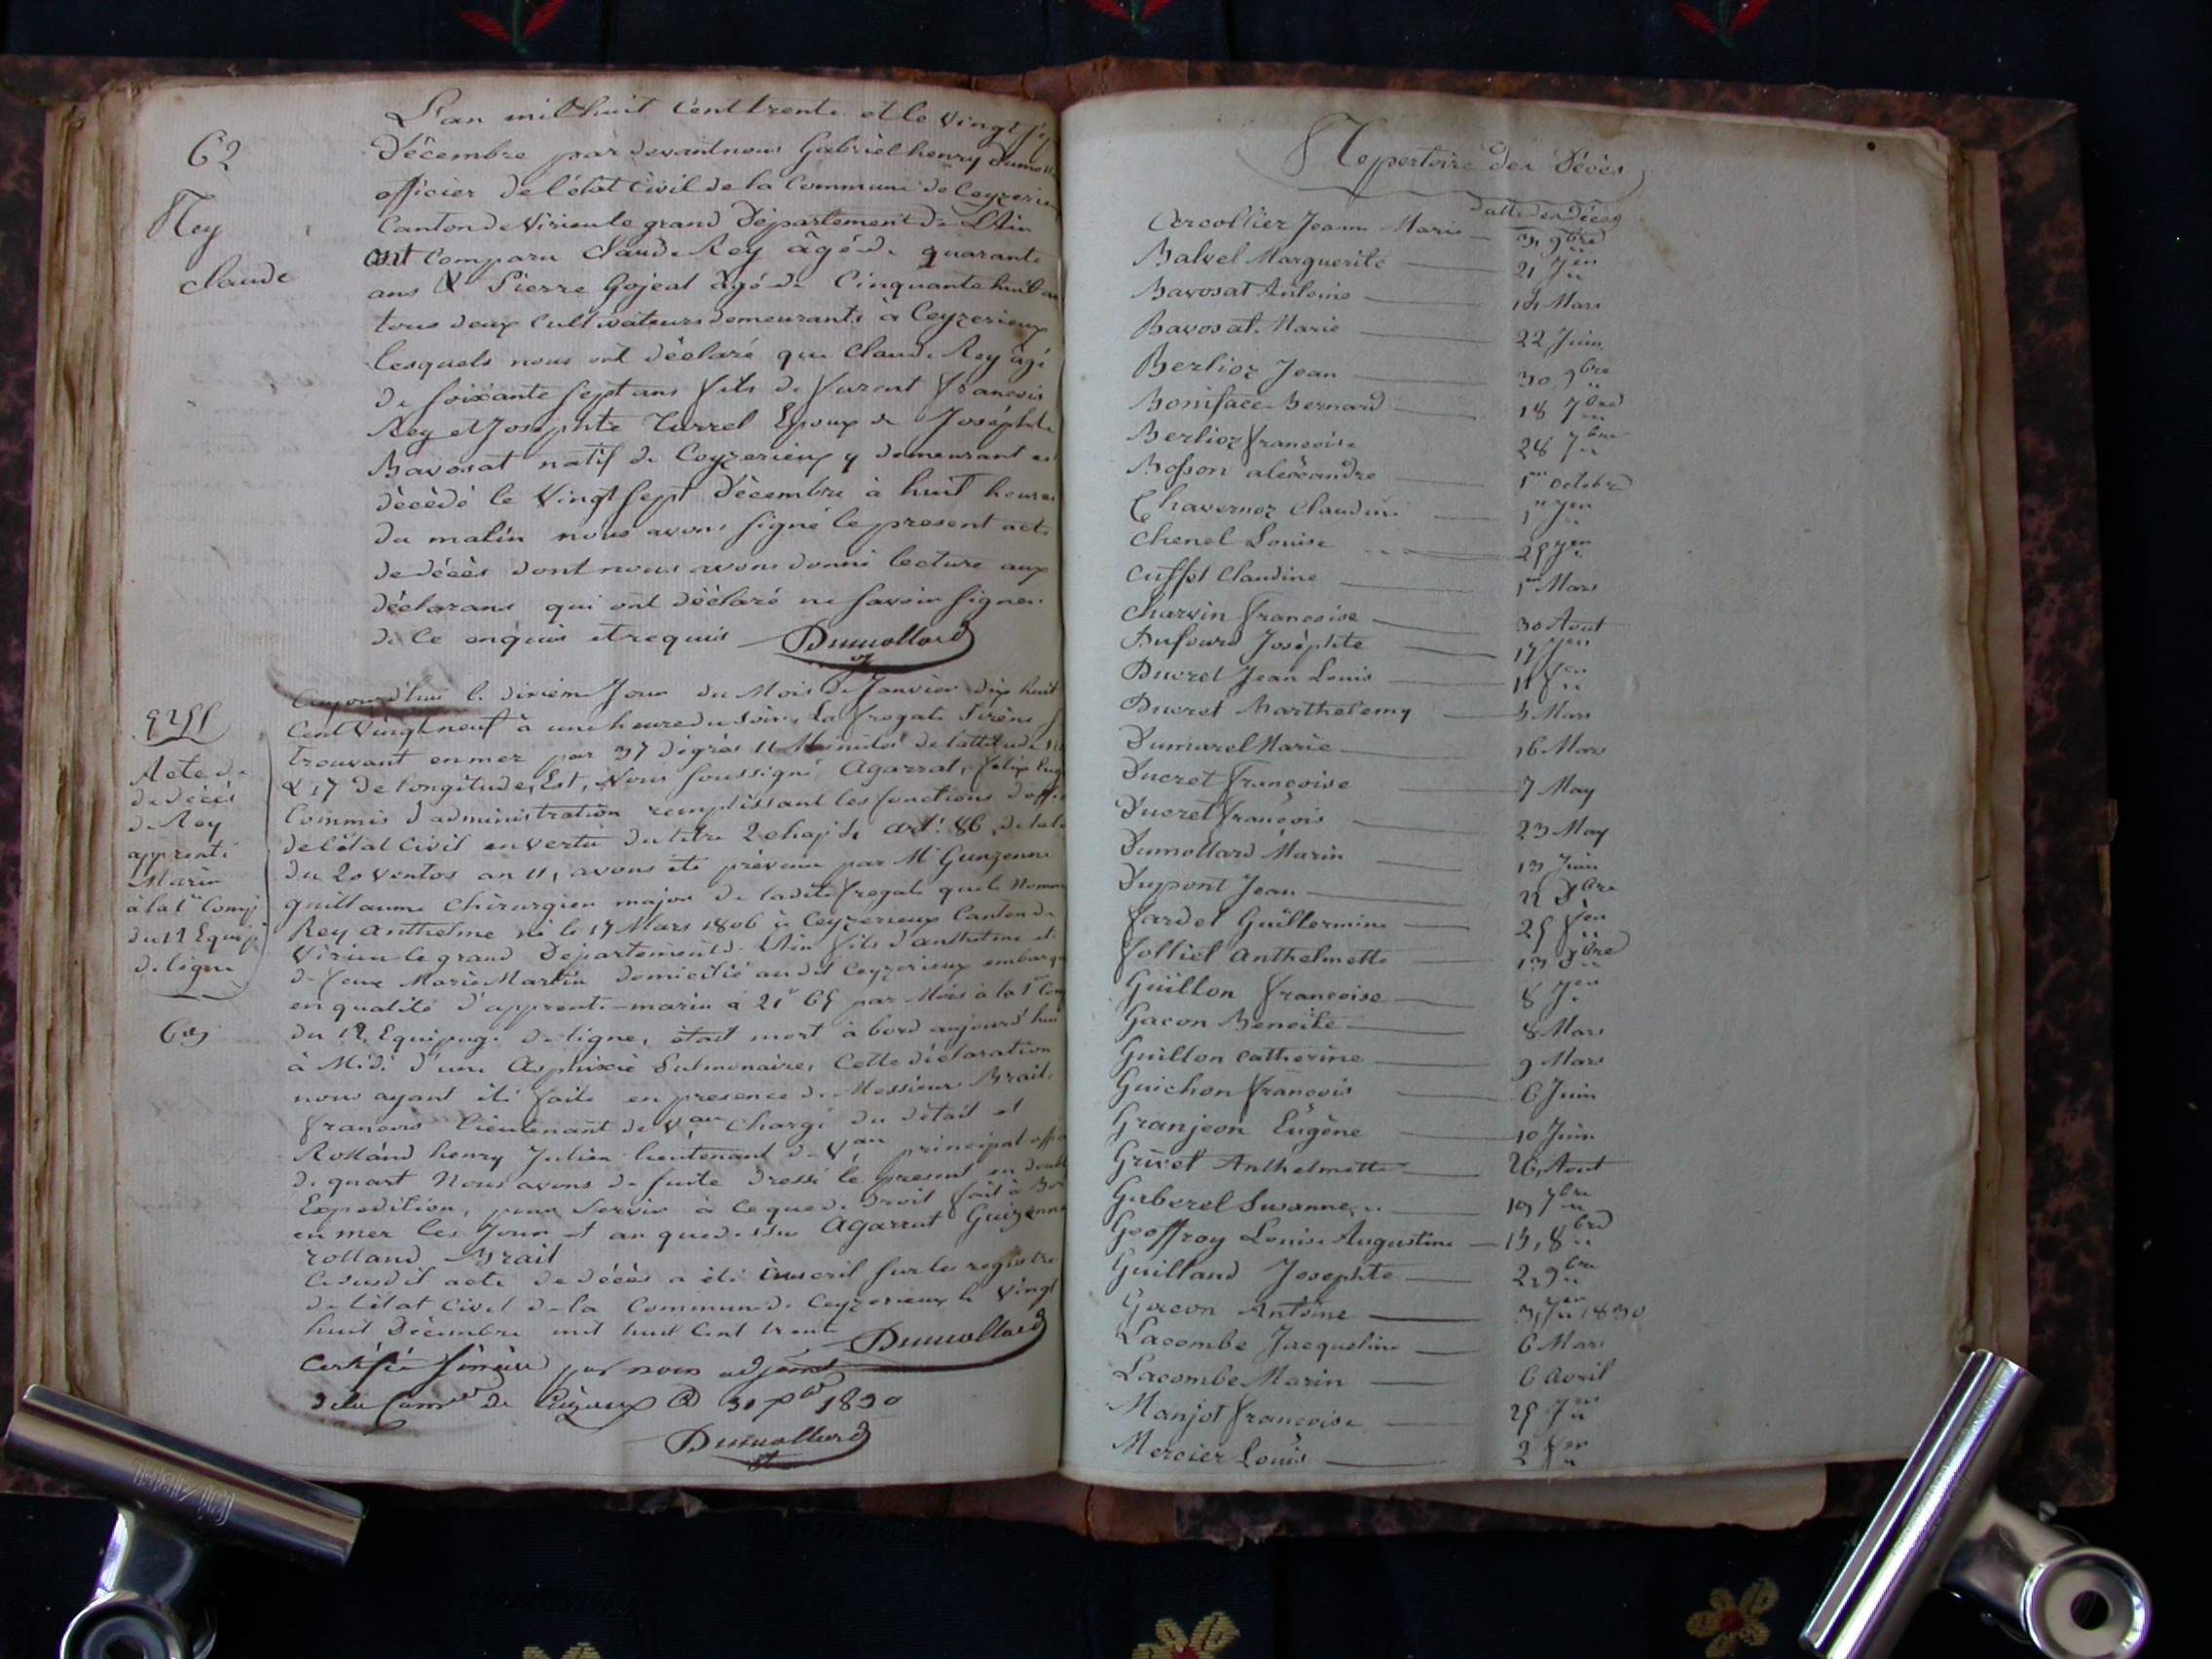 62
Rey
Claude
L'an mil huit Cent trente et le Vingt
Décembre par devant nous Gabriel henry Dumo
officier de l'état Civil de la Commune de Ceyzerie
Canton de Virieu le grand Département de L'Ain
ont Comparu Claude Rey âgé de quarante
ans & Pierre Gojeat âgé de Cinquante huit
tous deux Cultivateurs demeurants à Ceyzerieux
lesquels nous ont déclaré que Claude Rey âgé
de soixante sept ans fils de François
Rey et Josephte Turrel Epoux de Joséphte
Bavosat natif de Ceyzerieux y demeurant
décédé le Vingt Sept Décembre à huit heures
du matin nous avons signé le present acte
de décès dont nous avons donné lecture aux
déclarans qui ont déclaré ne savoir signer
de ce enquis et requis Dumollard
Acte de
de décés
de Rey
apprenti
Marin
à la 1re Comp
du 12 Equip
de ligne
63
Aujourd'hui le dixième Jour du Mois de Janvier dix huit
Cent Vingt neuf à une heure du soir, La fregate Sirène
trouvant en mer par 37 dégrès 11 Minutes de lattitude
& 17 de longitude Est, Nous soussigné Agarrat, félix
Commis d'administration remplissant les fonctions d'offi
de l'état Civil en Vertu du titre 2 chap. art. 86, de la
du 20 Ventos an 11, avons été prévenu par Mr
guillaume Chirurgien major de ladite fregate que le Nommé
Rey Anthelme né le 17 Mars 1806 à Ceyzerieux Canton de
Virieu le grand Département de L'Ain fils d'anthelme et
de feue Marie Martin domicilié audit Ceyzerieux embarqu
en qualité d'apprenti-marin à 21f 65 par Mois à la 1re Com
du 12 Equipage de ligne, était mort à bord aujourd'hui
à Midi d'une Asphixie Pulmonaire, Cette déclaration
nous ayant été faite en presence de Messieurs Brait,
francois lieutenant de Vau Chargé du détail et
Rolland henry Julien lieutenant de Vau principal offi
de quart Nous avons de suite dressé le present en doubl
Expedition, pour Servir à ce que de Droit fait à Bor
en mer les Jour et an que dessus Agarrat
rolland Brait
Le susdit acte de décés a été inscrit sur les registre
de l'état Civil de la Commune de Ceyzerieux le Vingt
huit Décembre mil huit Cent trente Dumollard
Certifié par nous adjoint
de la Comne de 1830
Dumollard
Repertoire des Décès
datte des Décès
Arcollier Jeanne Marie 9bre
Balvel Marguerite 21 Jer
Bavosat Antoine 14 Mars
Bavosat Marie 22 Juin
Berlioz Jean 30 9bre
Boniface Bernard 18 7bre
Berlioz francoise 28 7bre
Bosson alexandre 1er octobre
Chavernoz Claudine 1er Jer
Chenel Louise
Cussot Claudine 1er Mars
Charvin francoise 30 Aout
Dufourd Joséphte 17 Jer
Ducret Jean Louis 11 fer
Ducret Barthelemy Mars
Dumarel Marie 16 Mars
Ducret Françoise 7 May
Ducret françois 23 May
Dumollard Marin 13 Juin
Dupont Jean
Fardel Guillermine 25 fer
Folliet Anthelmette
Guillon francoise 8 Jer
Gacon Benoite 8 Mars
Guillon Catherine 9 Mars
Guichon francois 6 Juin
Granjeon Eugène 10 Juin
Grivet Anthelmette 26 Aout
Gaberel Susanne 7bre
Geoffroy Louise Augustine 8bre
Guilland Josephte 2 9bre
Gacon Antoine 1830
Lacombe Jacqueline 6 Mars
Lacombe Marin 6 Avril
Manjot francoise
Mercier Louis 2 fer